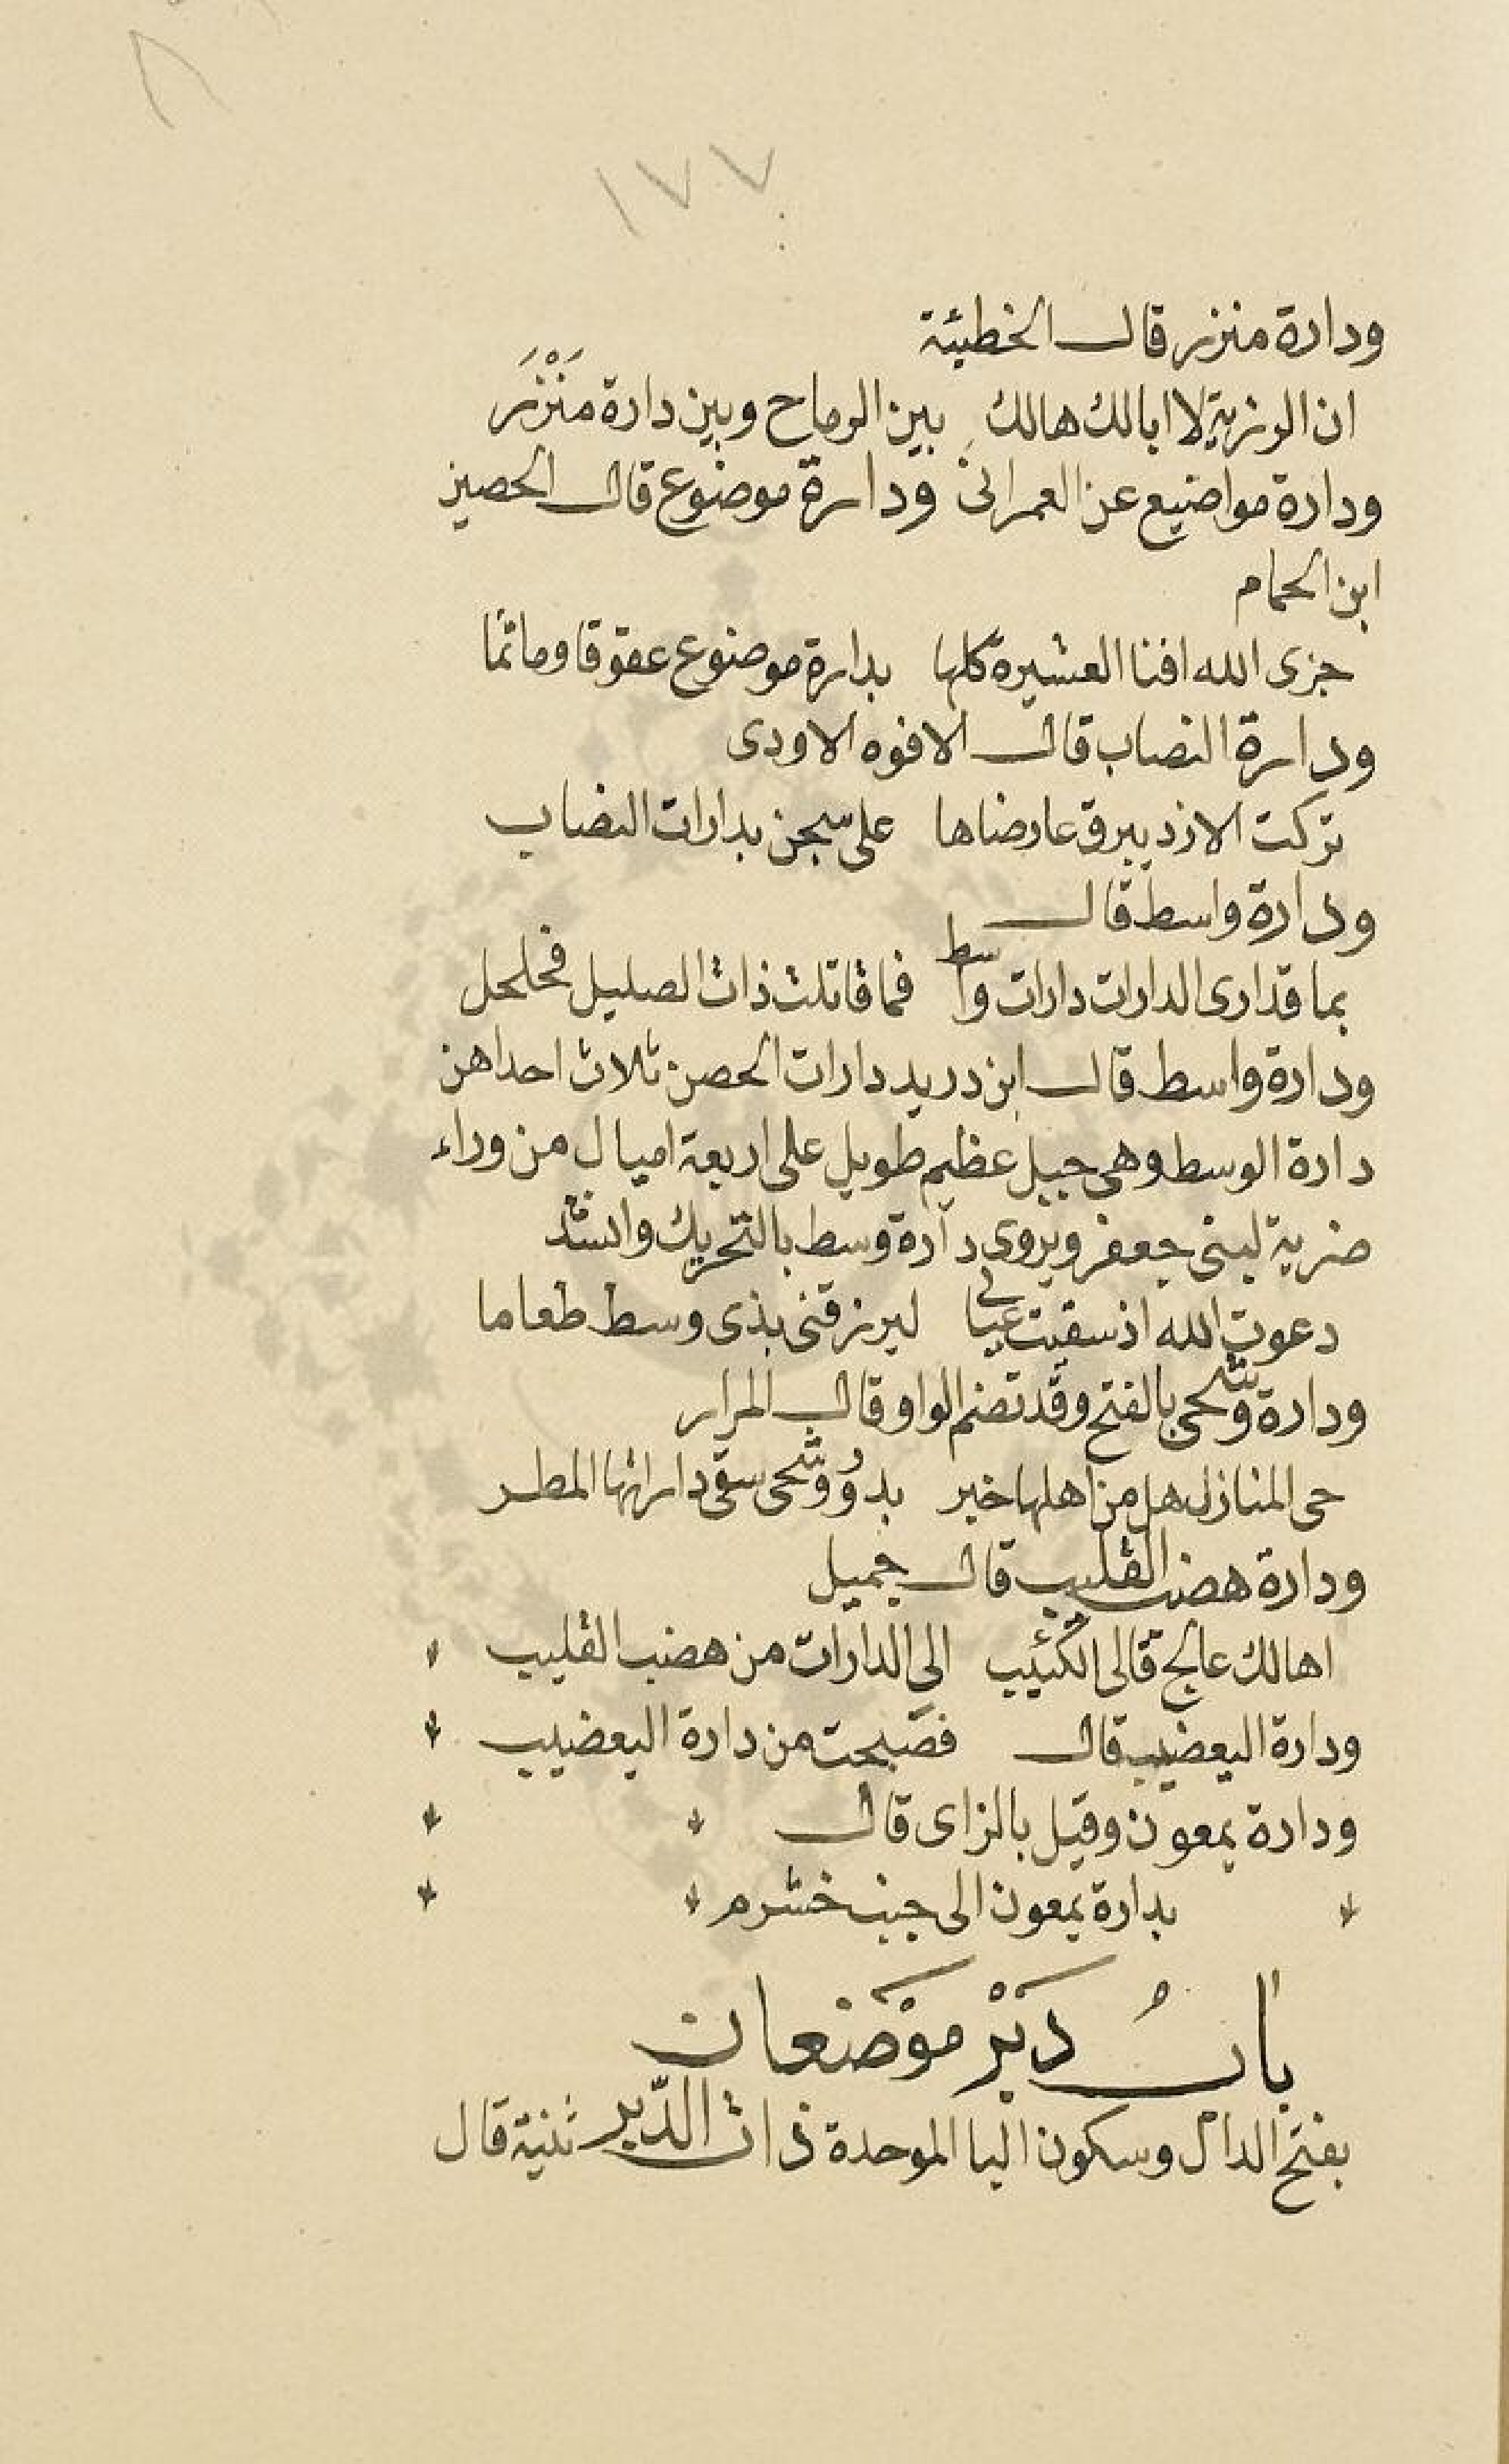 ١٧٧
ودارة منزر قال الخطيئة
ان الونرية لا ابالك هالك بين الرماح وبين دارة مَنْزَر
ودارة مواضيع عن العمرانى ودارة موضوع قال الحصين
ابن الحمام
جزى الله افنا العشيرة كلها بدارة موضوع عقوقا وماثما
ودارة النصاب قال الافوه الاودى
تركت الازد يبرق عارضاها على سجن بدارات النضاب
ودارة واسط قال
بما قد ارى الدارات دارات واسط فما قاتلت ذات الصليل فحلحل
ودارة واسط قال ابن دريد دارات الحصن ثلاث احداهن
دارة الوسط وهى جبل عظيم طويل على اربعة اميال من وراء
ضرية لبنى جعفر ويروى دارة وسط بالتحريك وانشد
دعوت الله اذ سقيت عيالى ليرزقنى بذى وسط طعاما
ودارة وشحى بالفتح وقد تضم الواو قال المرار
حى المنازل هل من اهلها خبر بدوُوشحى سقى داراتها المطر
ودارة هضب القليب قال جميل
اهالك عالج قالى الكئيب الى الدارات من هضب القليب
ودارة اليعضيب قال فصَبحت من دارة اليعضيب
ودارة يمعون وقيل بالزاى قال
بدارة يمعون الى جنب خشرم
بابُ دَيْر موْضعان
بفتح الدال وسكون اليا الموحدة ذات الدَّير ثنية قال